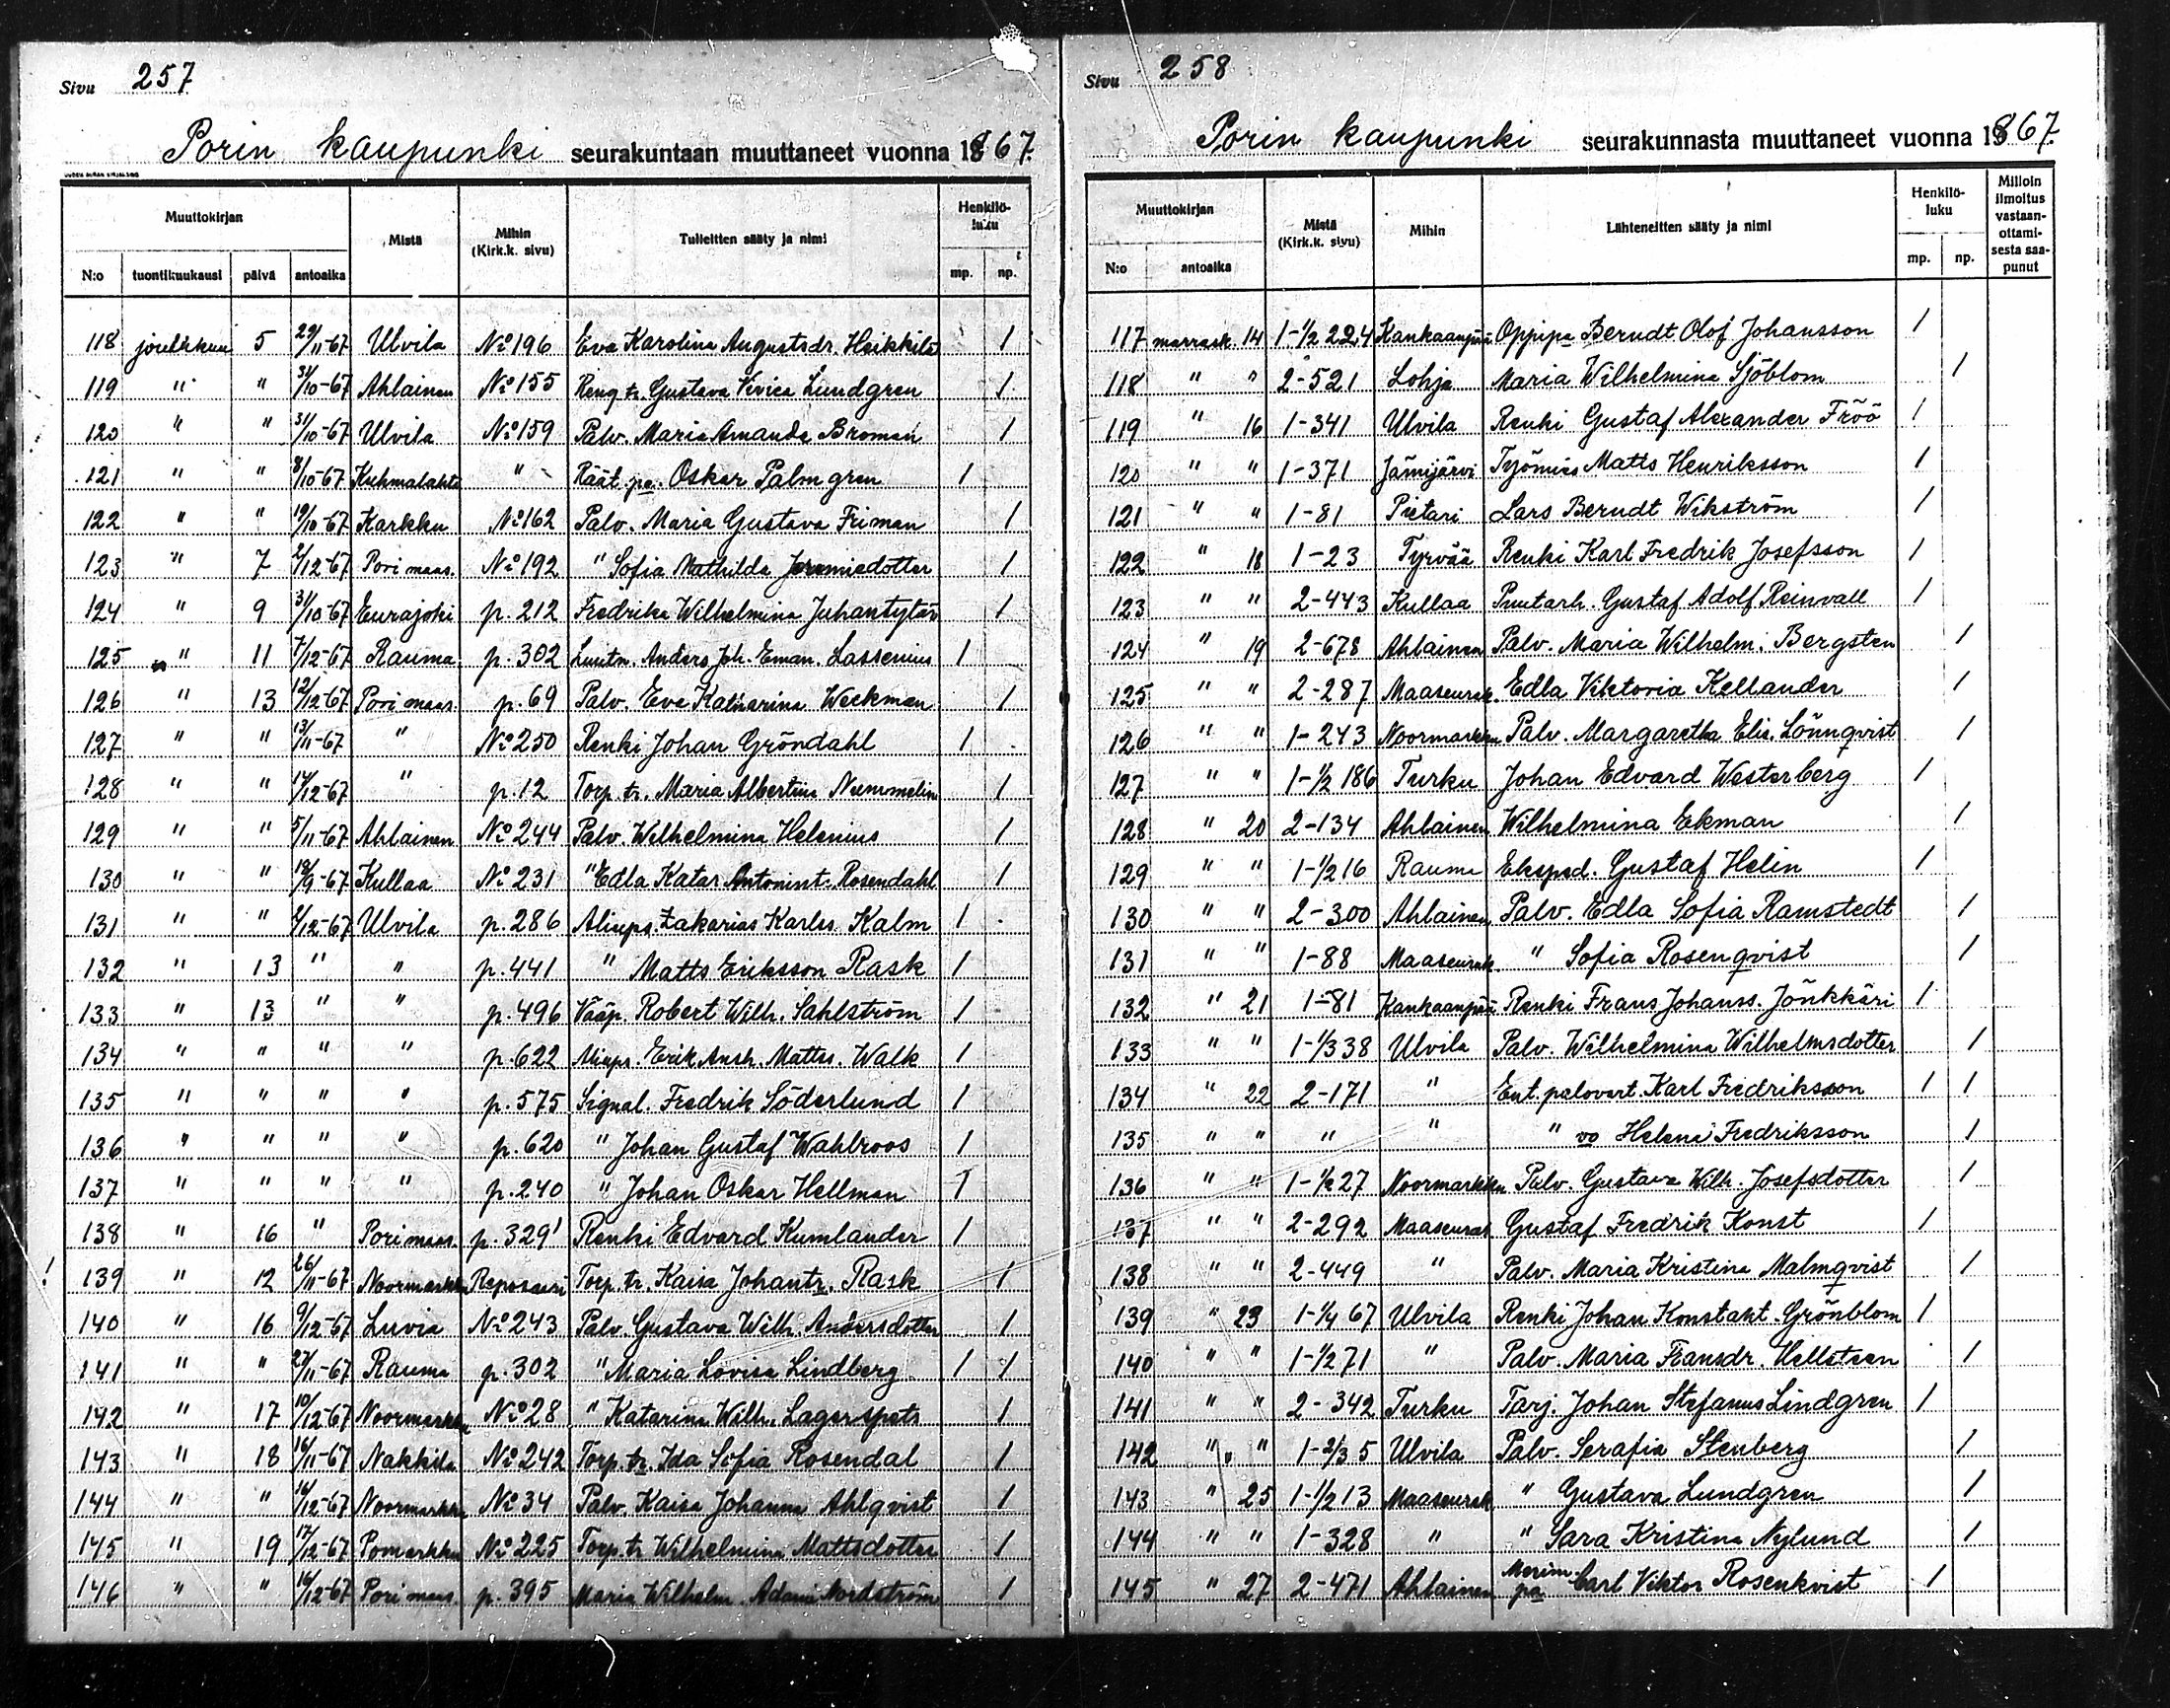 Sivu 257
Porin kaupunki seurakuntaan muuttaneet vuonna 1867.
UUDEN AURAN KIRJAPAINO
Muuttokirjan Mistä Mihin (Kirk.k. sivu) Tulleitten sääty ja nimi Henkilö-luku
N:o tuontikuukausi päivä antoaika mp. np.
118 joulukuu 5 29/11-67 Ulvila No 196 Eva Karolina Augustsdr. Heikkilä 1
119 " " 31/10-67 Ahlainen No 155 Reng tr. Gustava Vivica Lundgren 1
120 " " 31/10-67 Ulvila No 159 Palv. Maria Amanda Broman 1
121 " " 8/10-67 Kuhmalahti " Räät. pa. Oskar Palmgren 1
122 " " 19/10-67 Karkku No 162 Palv. Maria Gustava Friman 1
123 " 7 2/12-67 Pori maas. No 192 " Sofia Mathilda Jeremiedotter 1
124 " 9 31/10-67 Eurajoki p. 212 Fredrika Wilhelmina Juhantytär 1
125 " 11 7/12-67 Rauma p. 302 Luutn. Anders Joh. Eman. Lassenius 1
126 " 13 12/12-67 Pori maas. p. 69 Palv. Eva Katharina Weckman 1
127 " " 13/11-67 " No 250 Renki Johan Gröndahl 1
128 " " 14/12-67 " p. 12 Torp. tr. Maria Albertina Nummelin 1
129 " " 5/11-67 Ahlainen No 244 Palv. Wilhelmina Helenius 1
130 " " 18/9-67 Kullaa No 231 " Edla Katar. Antonint. Rosendahl 1
131 " " 2/12-67 Ulvila p. 286 Aliups. Zakarias Karlss. Kalm 1
132 " 13 " " p. 441 " Matts Eriksson Rask 1
133 " 13 " " p. 496 Vääp. Robert Wilh. Sahlström 1
134 " " " " p. 622 Aliups. Erik Ansh. Mattss. Walk 1
135 " " " " p. 575 Signal. Fredrik Söderlund 1
136 " " " " p. 620 " Johan Gustaf Wahlroos 1
137 " " " " p. 240 " Johan Oskar Hellman 1
138 " 16 " Pori maas. p. 329 Renki Edvard Kumlander 1
! 139 " 12 26/11-67 Noormarkku Reposaari Torp. tr. Kaisa Johantr. Rask 1
140 " 16 9/12-67 Luvia No 243 Palv. Gustava Wilh. Andersdotter 1
141 " " 27/11-67 Rauma p. 302 " Maria Lovisa Lindberg 1 1
142 " 17 10/12-67 Noormarkku No 28 " Katarina Wilh. Lagerspets 1
143 " 18 16/11-67 Nakkila No 242 Torp. tr. Ida Sofia Rosendal 1
144 " " 16/12-67 Noormarkku No 34 Palv. Kaisa Johanna Ahlqvist 1
145 " 19 17/12-67 Pomarkku No 225 Torp. tr. Wilhelmina Mattsdotter 1
146 " " 16/12-67 Pori maas. p. 395 Maria Wilhelm. Adami Nordström 1
Sivu 258
Porin kaupunki seurakunnasta muuttaneet vuonna 1867.
Muuttokirjan Mistä (Kirk.k. sivu) Mihin Lähteneitten sääty ja nimi Henkilö-luku Milloin ilmoitus vastaan-ottami-sesta saa-punut
N:o antoaika mp. np.
117 marrask. 14 1-1/2 224 Kankaanpää Oppipa Berndt Olof Johansson 1
118 " " 2-521 Lohja Maria Wilhelmina Sjöblom 1
119 " 16 1-341 Ulvila Renki Gustaf Alexander Fröö 1
120 " " 1-371 Jämijärvi Työmies Matts Henriksson 1
121 " " 1-81 Pietari Lars Berndt Wikström 1
122 " 18 1-23 Tyrvää Renki Karl Fredrik Josefsson 1
123 " " 2-443 Kullaa Puutarh. Gustaf Adolf Reinvall 1
124 " 19 2-678 Ahlainen Palv. Maria Wilhelm. Bergsten 1
125 " " 2-287 Maaseurak. Edla Viktoria Kellander 1
126 " " 1-243 Noormarkku Palv. Margaretha Elis. Lönnqvist 1
127 " " 1-1/2 186 Turku Johan Edvard Westerberg 1
128 " 20 2-134 Ahlainen Wilhelmina Ekman 1
129 " " 1-1/2 16 Rauma Eksped. Gustaf Helin 1
130 " " 2-300 Ahlainen Palv. Edla Sofia Ramstedt 1
131 " " 1-88 Maaseurak. " Sofia Rosenqvist 1
132 " 21 1-81 Kankaanpää Renki Frans Johanss. Jönkkäri 1
133 " " 1-1/3 38 Ulvila Palv. Wilhelmina Wilhelmsdotter 1
134 " 22 2-171 " Ent. palovart. Karl Fredriksson 1 1
135 " " " " " vo Helena Fredriksson 1
136 " " 1-1/2 27 Noormarkku Palv. Gustava Wilh. Josefsdotter 1
137 " " 2-292 Maaseurak Gustaf Fredrik Konst 1
138 " " 2-449 " Palv. Maria Kristina Malmqvist 1
139 " 23 1-1/4 67 Ulvila Renki Johan Konstant. Grönblom 1
140 " " 1-1/2 71 " Palv. Maria Fransdr. Hellsteen 1
141 " " 2-342 Turku Tarj. Johan Stefanus Lindgren 1
142 " " 1-2/3 5 Ulvila Palv. Serafia Stenberg 1
143 " 25 1-1/2 13 Maaseurak " Gustava Lundgren 1
144 " " 1-328 " " Sara Kristina Nylund 1
145 " 27 2-471 Ahlainen Merim. pa Carl Viktor Rosenkvist 1